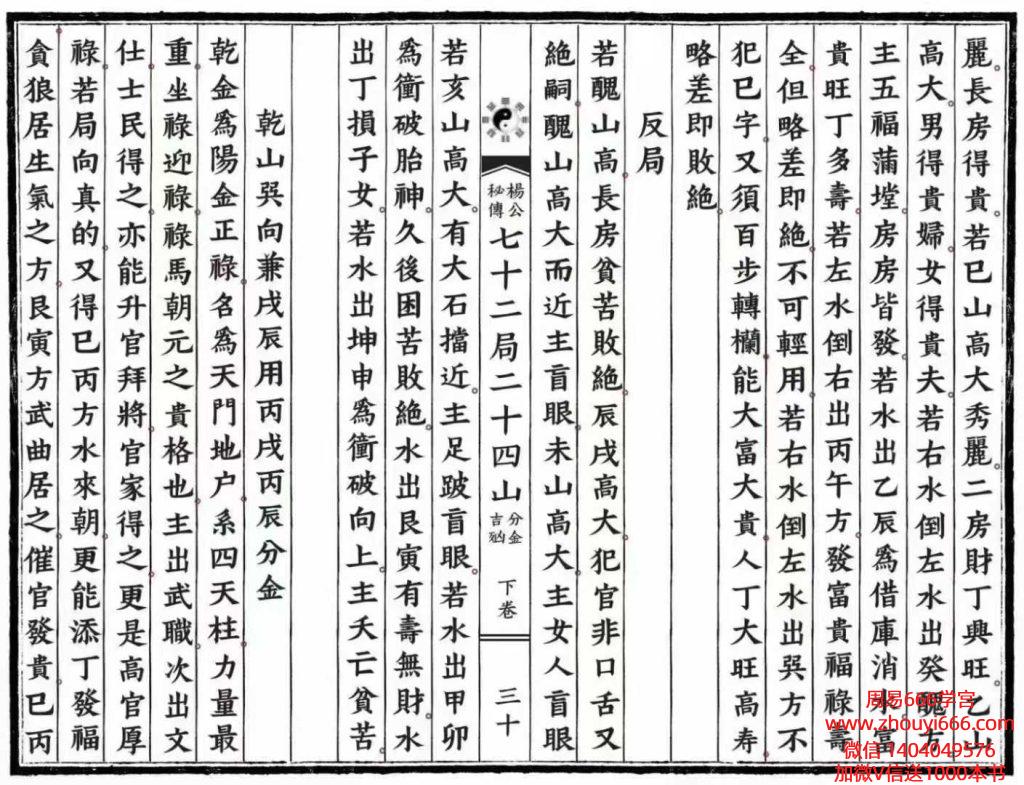 麗。長房得貴。若巳山高大秀麗。二房財丁興旺。乙山
高大。男得貴婦。女得貴夫。若右水倒左水出癸醜方
主五福蒲墭。房房皆發。若水出乙辰爲借庫消水。富
貴旺丁多壽。若左水倒右出丙午方。發富貴福祿壽
全。但略差即絶。不可輕用。若右水倒左水出巽方不
犯巳字。又須百步轉欄。能大富大貴。人丁大旺高寿。
略差即敗絶。
反局
若醜山高。長房貧苦敗絶。辰戌高大。犯官非口舌。又
絶嗣。醜山高大而近。主盲眼。未山高大。主女人盲眼
楊公秘傳 七十二局二十四山 分金吉凶 下卷 三十
若亥山高大。有大石擋近。主足跛盲眼。若水出甲卯
爲衝破胎神。久後困苦敗絶。水出艮寅有壽無財。水
出丁損子女。若水出坤申爲衝破向上。主夭亡貧苦。
乾山巽向兼戌辰用丙戌丙辰分金
乾金爲陽金正祿。名爲天門地户。系四天柱。力量最
重。坐祿迎祿。祿馬朝元之貴格也。主出武職。次出文
仕。士民得之。亦能升官拜將。官家得之。更是高官厚
祿。若局向真的。又得巳丙方水來朝。更能添丁發福。
貪狼居生氣之方。艮寅方武曲居之。催官發貴。巳丙
周易666学宫
www.zhouyi666.com
微信 1404049576
加微V信送1000本书